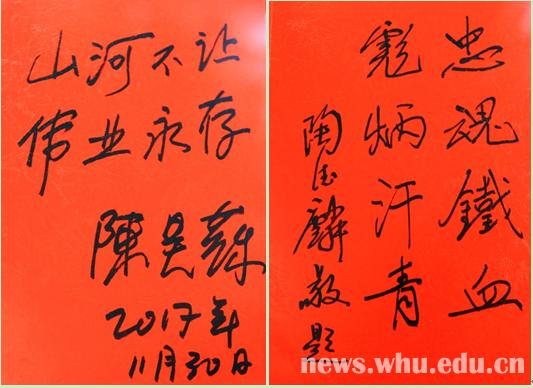 山河不让
伟业永存
陳昊蘇
2017年
11月30日
忠魂鐵血
彪炳汗青
陶德麟敬题
news.whu.edu.cn